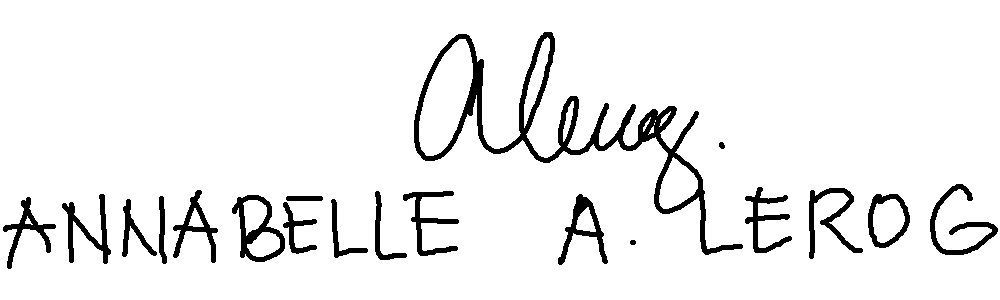 Alerog.
ANNABELLE A. LEROG